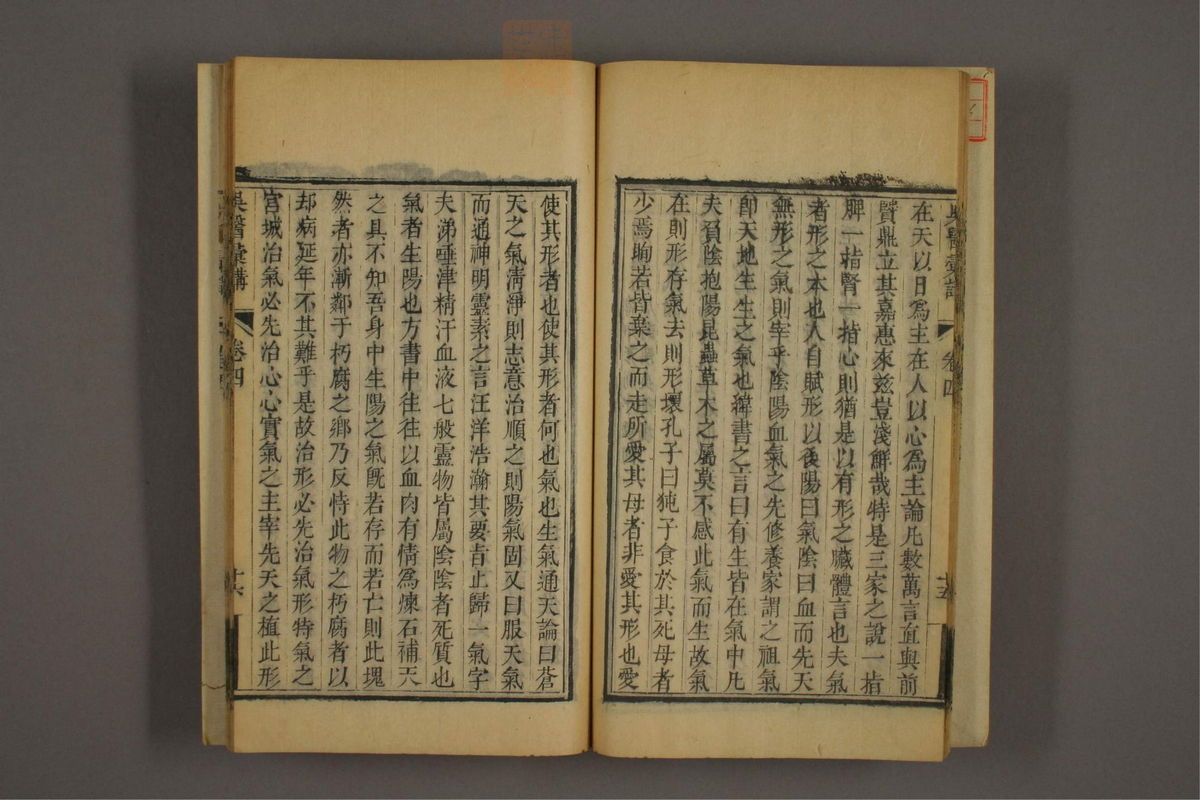 吳醫彙講
卷四
十五
在天以日為主在人以心為主論凡數萬言直與前
賢鼎立其嘉惠來兹豈淺鮮哉特是三家之說一指
脾一指腎一指心則猶是以有形之臟體言也夫氣
者形之本也人自賦形以後陽曰氣陰曰血而先天
無形之氣則宰乎陰陽血氣之先修養家謂之祖氣
卽天地生生之氣也緯書之言曰有生皆在氣中凡
夫負陰抱陽昆蟲草木之屬莫不感此氣而生故氣
在則形存氣去則形壞孔子曰㹠子食於其死母者
少焉眴若皆棄之而走所愛其母者非愛其形也愛
使其形者也使其形者何也氣也生氣通天論曰蒼
天之氣淸淨則志意治順之則陽氣固又曰服天氣
而通神明靈素之言汪洋浩瀚其要旨止歸一氣字
夫涕唾津精汗血液七般靈物皆屬陰陰者死質也
氣者生陽也方書中往往以血肉有情為煉石補天
之具不知吾身中生陽之氣旣若存而若亡則此塊
然者亦漸鄰于朽腐之鄉乃反恃此物之朽腐者以
却病延年不其難乎是故治形必先治氣形特氣之
宮城治氣必先治心心實氣之主宰先天之植此形
吳醫彙講
卷四
十六